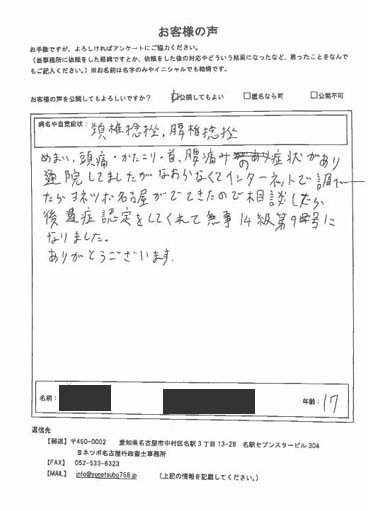 お客様の声
お手数ですが、よろしければアンケートにご協力ください。
(当事務所に依頼をした経緯ですとか、依頼をした後の対応やどういう結果になったなど、思ったことをなんでもご記入ください。)※お名前は名字のみやイニシャルでも結構です。
お客様の声を公開してもよろしいですか? ☑公開してもよい □匿名なら可 □公開不可
病名や自覚症状: 頚椎捻挫,腰椎捻挫
めまい,頭痛・かたこり・首,腰痛みの症状があり
通院してましたがなおらなくてインターネットで調べ
たらヨネツボ名古屋がでてきたので相談したら
後遺症認定をしてくれて無事14級第9号に
なりました。
ありがとうございます.
名前:
年齢: 17
返信先
【郵送】〒450-0002 愛知県名古屋市中村区名駅3丁目13-28 名駅セブンスタービル304
ヨネツボ名古屋行政書士事務所
【FAX】 052-533-6323
【MAIL】 info@yonetsubo758.jp (上記の情報を記載してください。)